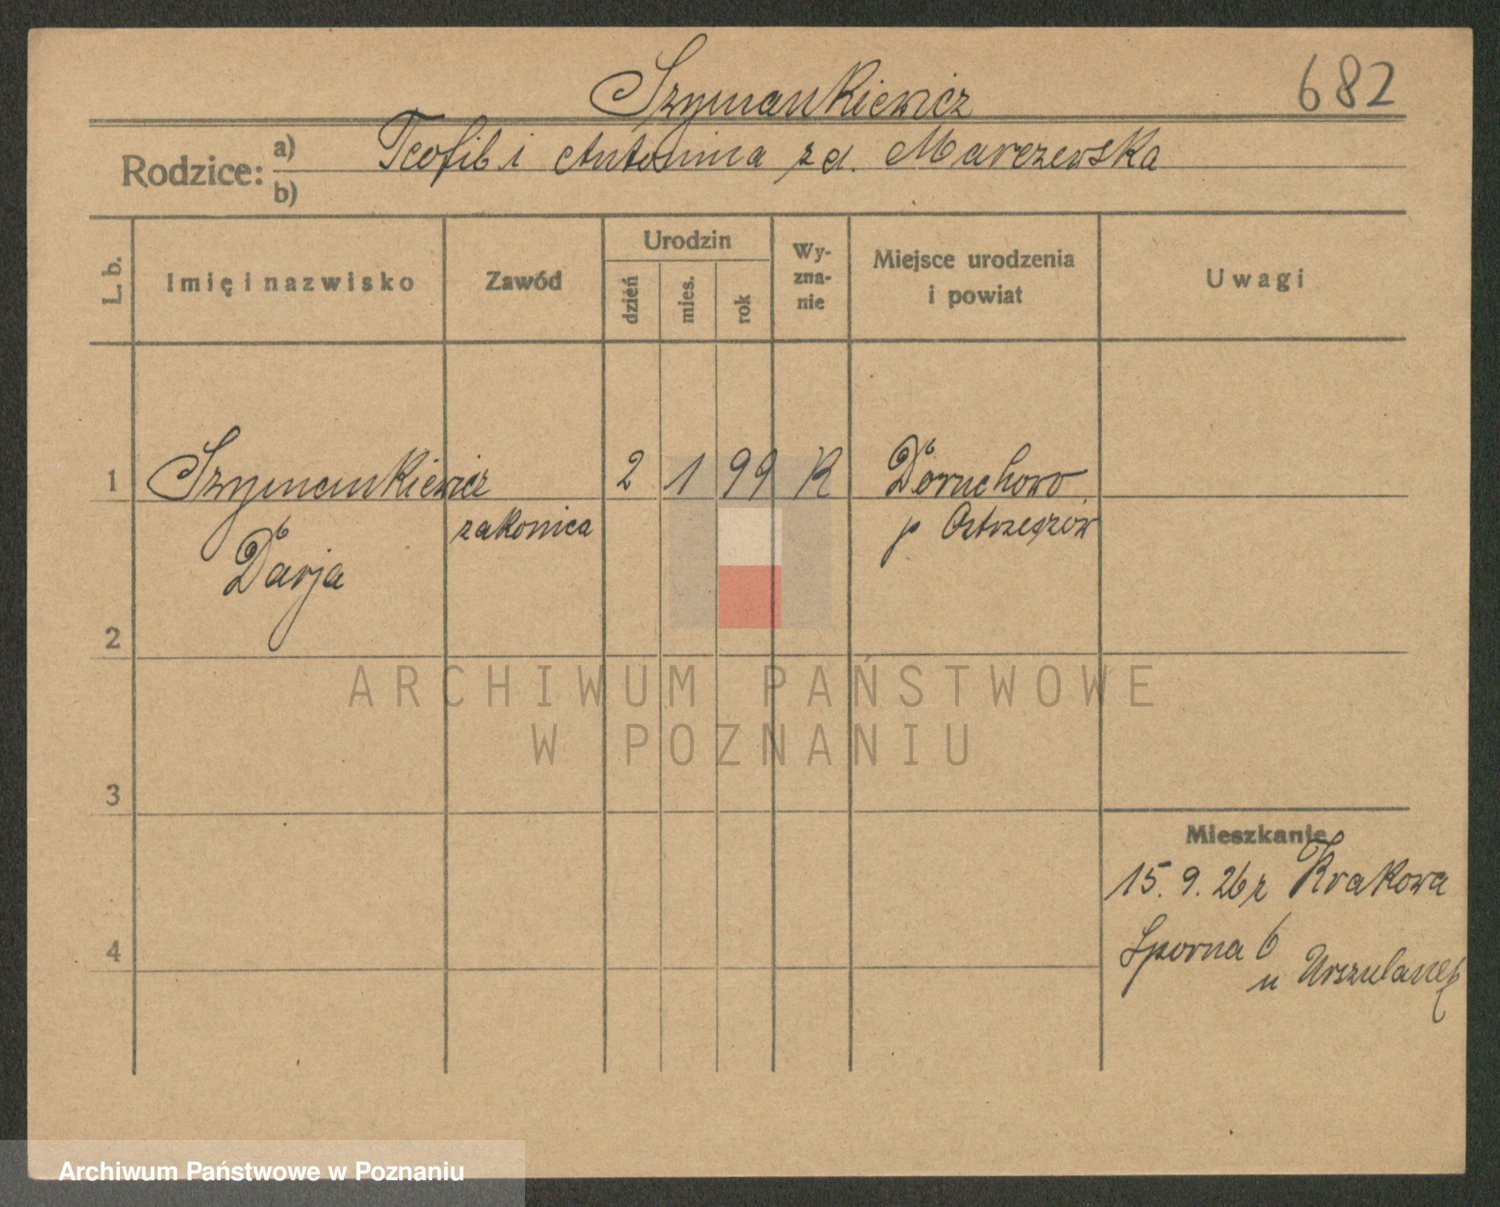 Szymankiewicz
682
Rodzice:
a) Teofil i Antonina z d. Marczewska
b)
L. b.
Imię i nazwisko
Zawód
Urodzin
dzień
mies.
rok
Wy-
zna-
nie
Miejsce urodzenia
i powiat
Uwagi
1 Szymankiewicz 2 1 99 R Doruchowo
Darja zakonica p Ostrzeszów
2
3
4
Mieszkanie
15. 9. 26 z Krakowa
Sporna 6
u Urszulanek
ARCHIWUM PAŃSTWOWE
W POZNANIU
Archiwum Państwowe w Poznaniu